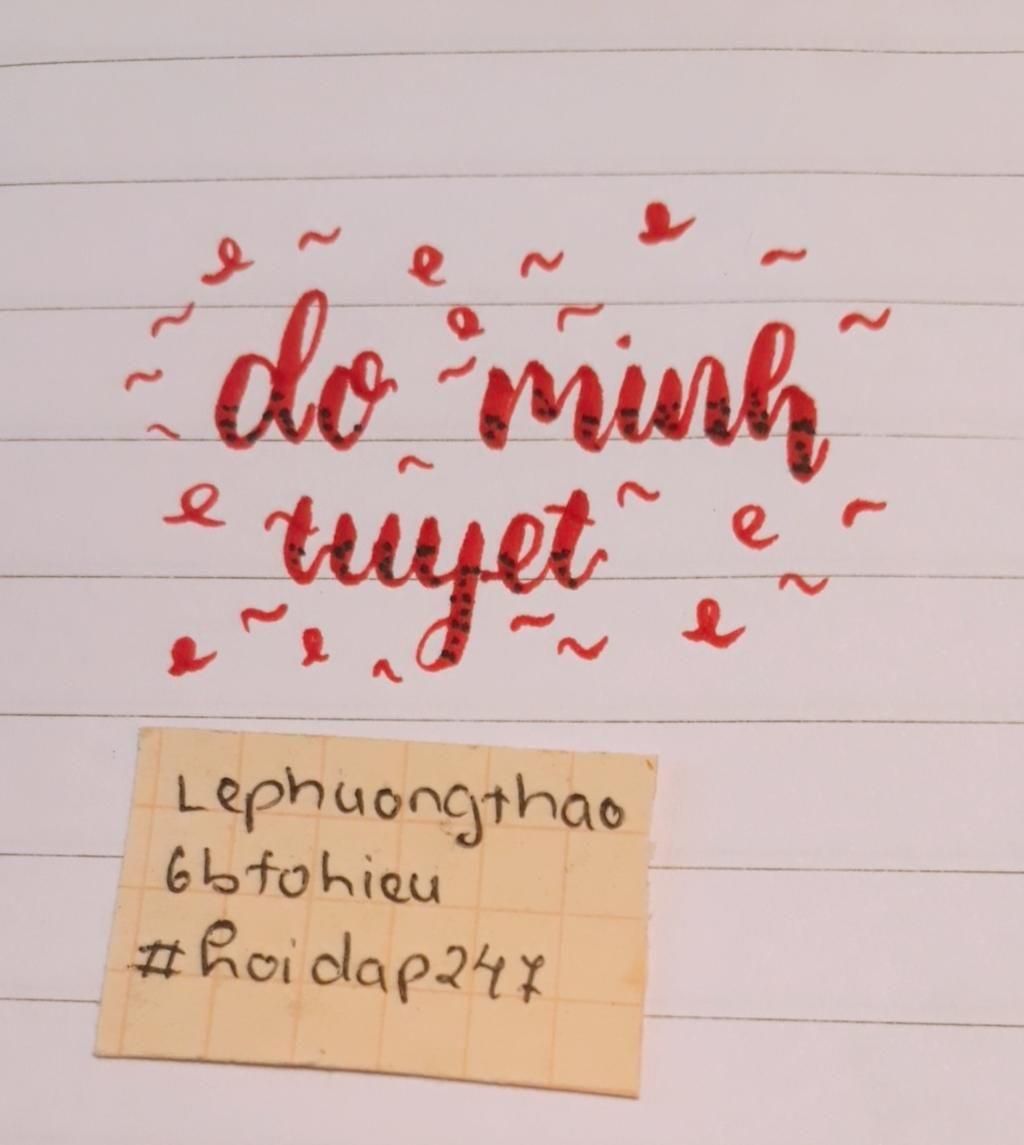 do minh
tuyet
Lephuongthao
6btohieu
#hoidap247